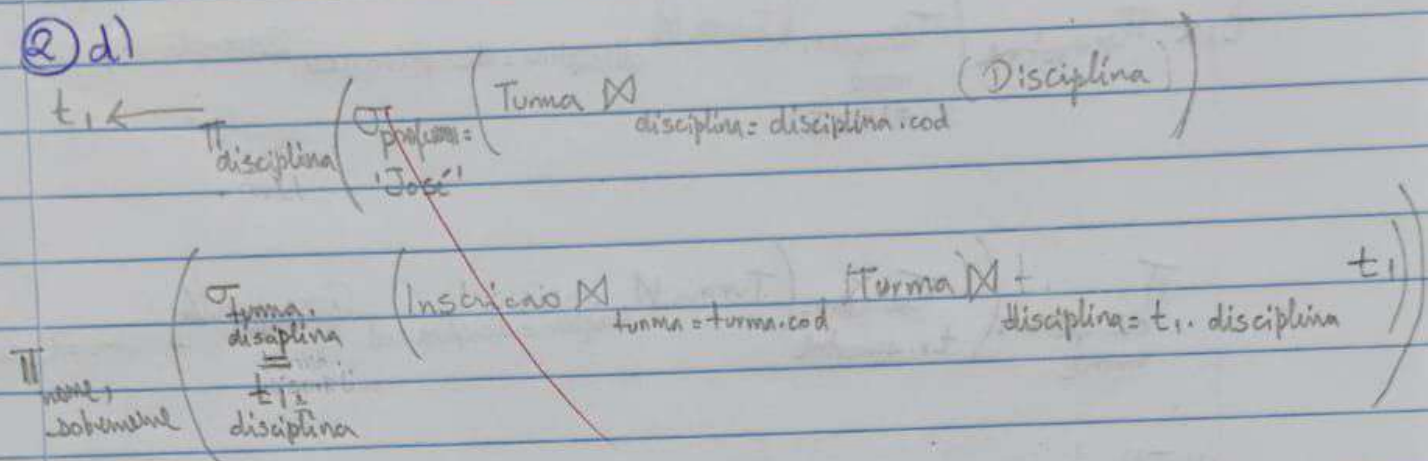 ② d)
t₁ ← π disciplina ( σ professor = 'José' ( Turma ⋈ disciplina = disciplina.cod (Disciplina) )
π nome, sobrenome ( σ turma.disciplina = t₁.disciplina ( Inscricao ⋈ turma = turma.cod (Turma ⋈ disciplina = t₁.disciplina t₁ ) ) )